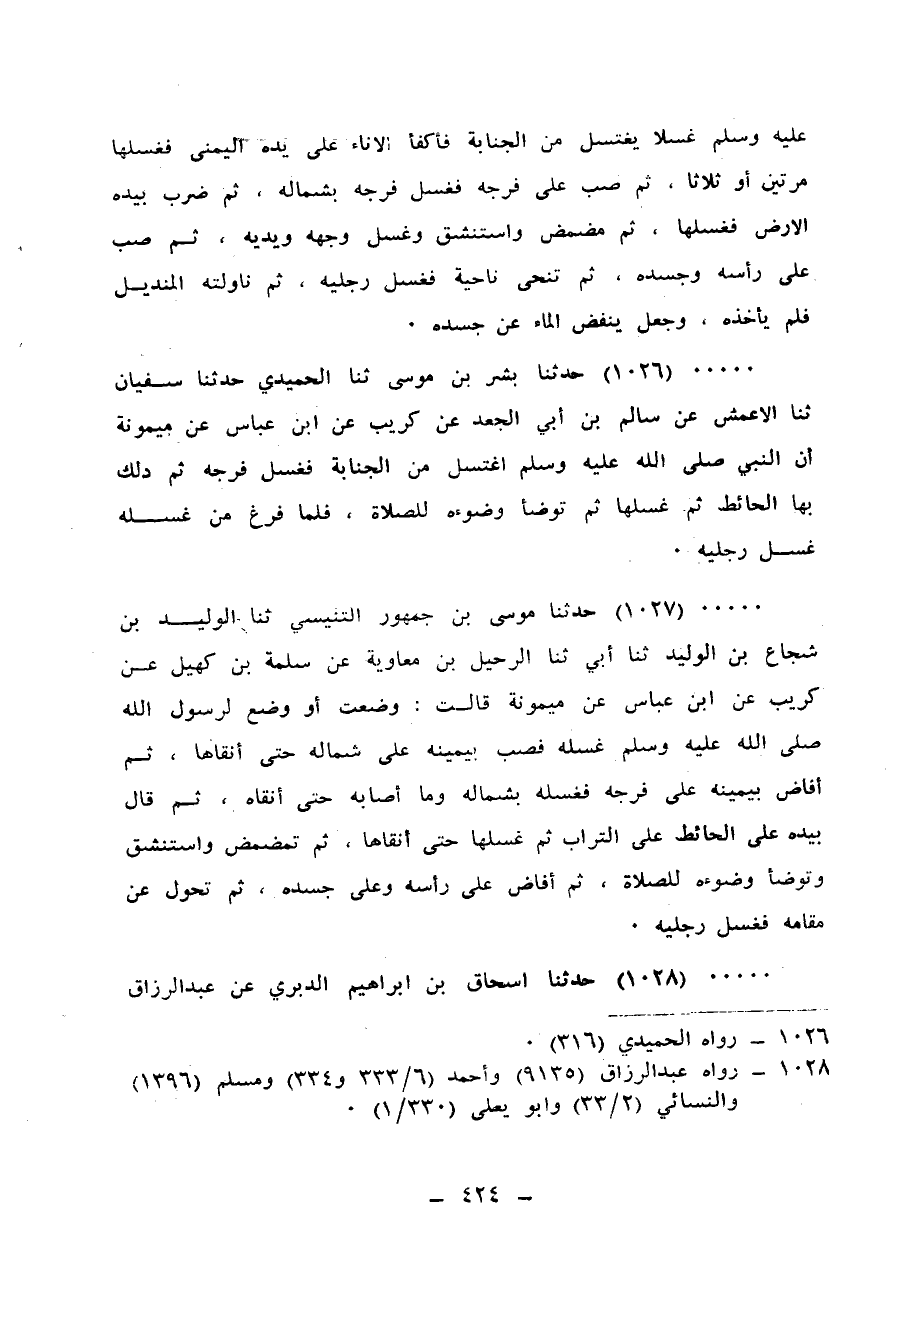 عليه وسلم غسلا يغتسل من الجنابة فأكفأ الاناء على يده اليمنى فغسلها
مرتين أو ثلاثا ، ثم صب على فرجه فغسل فرجه بشماله ، ثم ضرب بيده
الارض فغسلها ، ثم مضمض واستنشق وغسل وجهه ويديه ، ثم صب
على رأسه وجسده ، ثم تنحى ناحية فغسل رجليه ، ثم ناولته المنديل
فلم يأخذه ، وجعل ينفض الماء عن جسده ٠
٠٠٠٠٠ (١٠٢٦) حدثنا بشر بن موسى ثنا الحميدي حدثنا سفيان
ثنا الاعمش عن سالم بن أبي الجعد عن كريب عن ابن عباس عن ميمونة
أن النبي صلى الله عليه وسلم اغتسل من الجنابة فغسل فرجه ثم دلك
بها الحائط ثم غسلها ثم توضأ وضوءه للصلاة ، فلما فرغ من غسله
غسل رجليه ٠
٠٠٠٠٠ (١٠٢٧) حدثنا موسى بن جمهور التنيسي ثنا الوليد بن
شجاع بن الوليد ثنا أبي ثنا الرحيل بن معاوية عن سلمة بن كهيل عن
كريب عن ابن عباس عن ميمونة قالت : وضعت أو وضع لرسول الله
صلى الله عليه وسلم غسله فصب بيمينه على شماله حتى أنقاها ، ثم
أفاض بيمينه على فرجه فغسله بشماله وما أصابه حتى أنقاه ، ثم قال
بيده على الحائط على التراب ثم غسلها حتى أنقاها ، ثم تمضمض واستنشق
وتوضأ وضوءه للصلاة ، ثم أفاض على رأسه وعلى جسده ، ثم تحول عن
مقامه فغسل رجليه ٠
٠٠٠٠٠ (١٠٢٨) حدثنا اسحاق بن ابراهيم الدبري عن عبدالرزاق
١٠٢٦ ـ رواه الحميدي (٣١٦) ٠
١٠٢٨ ـ رواه عبدالرزاق (٩١٣٥) وأحمد (٣٣٣/٦ و٣٣٤) ومسلم (١٣٩٦)
والنسائي (٣٣/٢) وابو يعلى (١/٣٣٠) ٠
ـ ٤٢٤ ـ